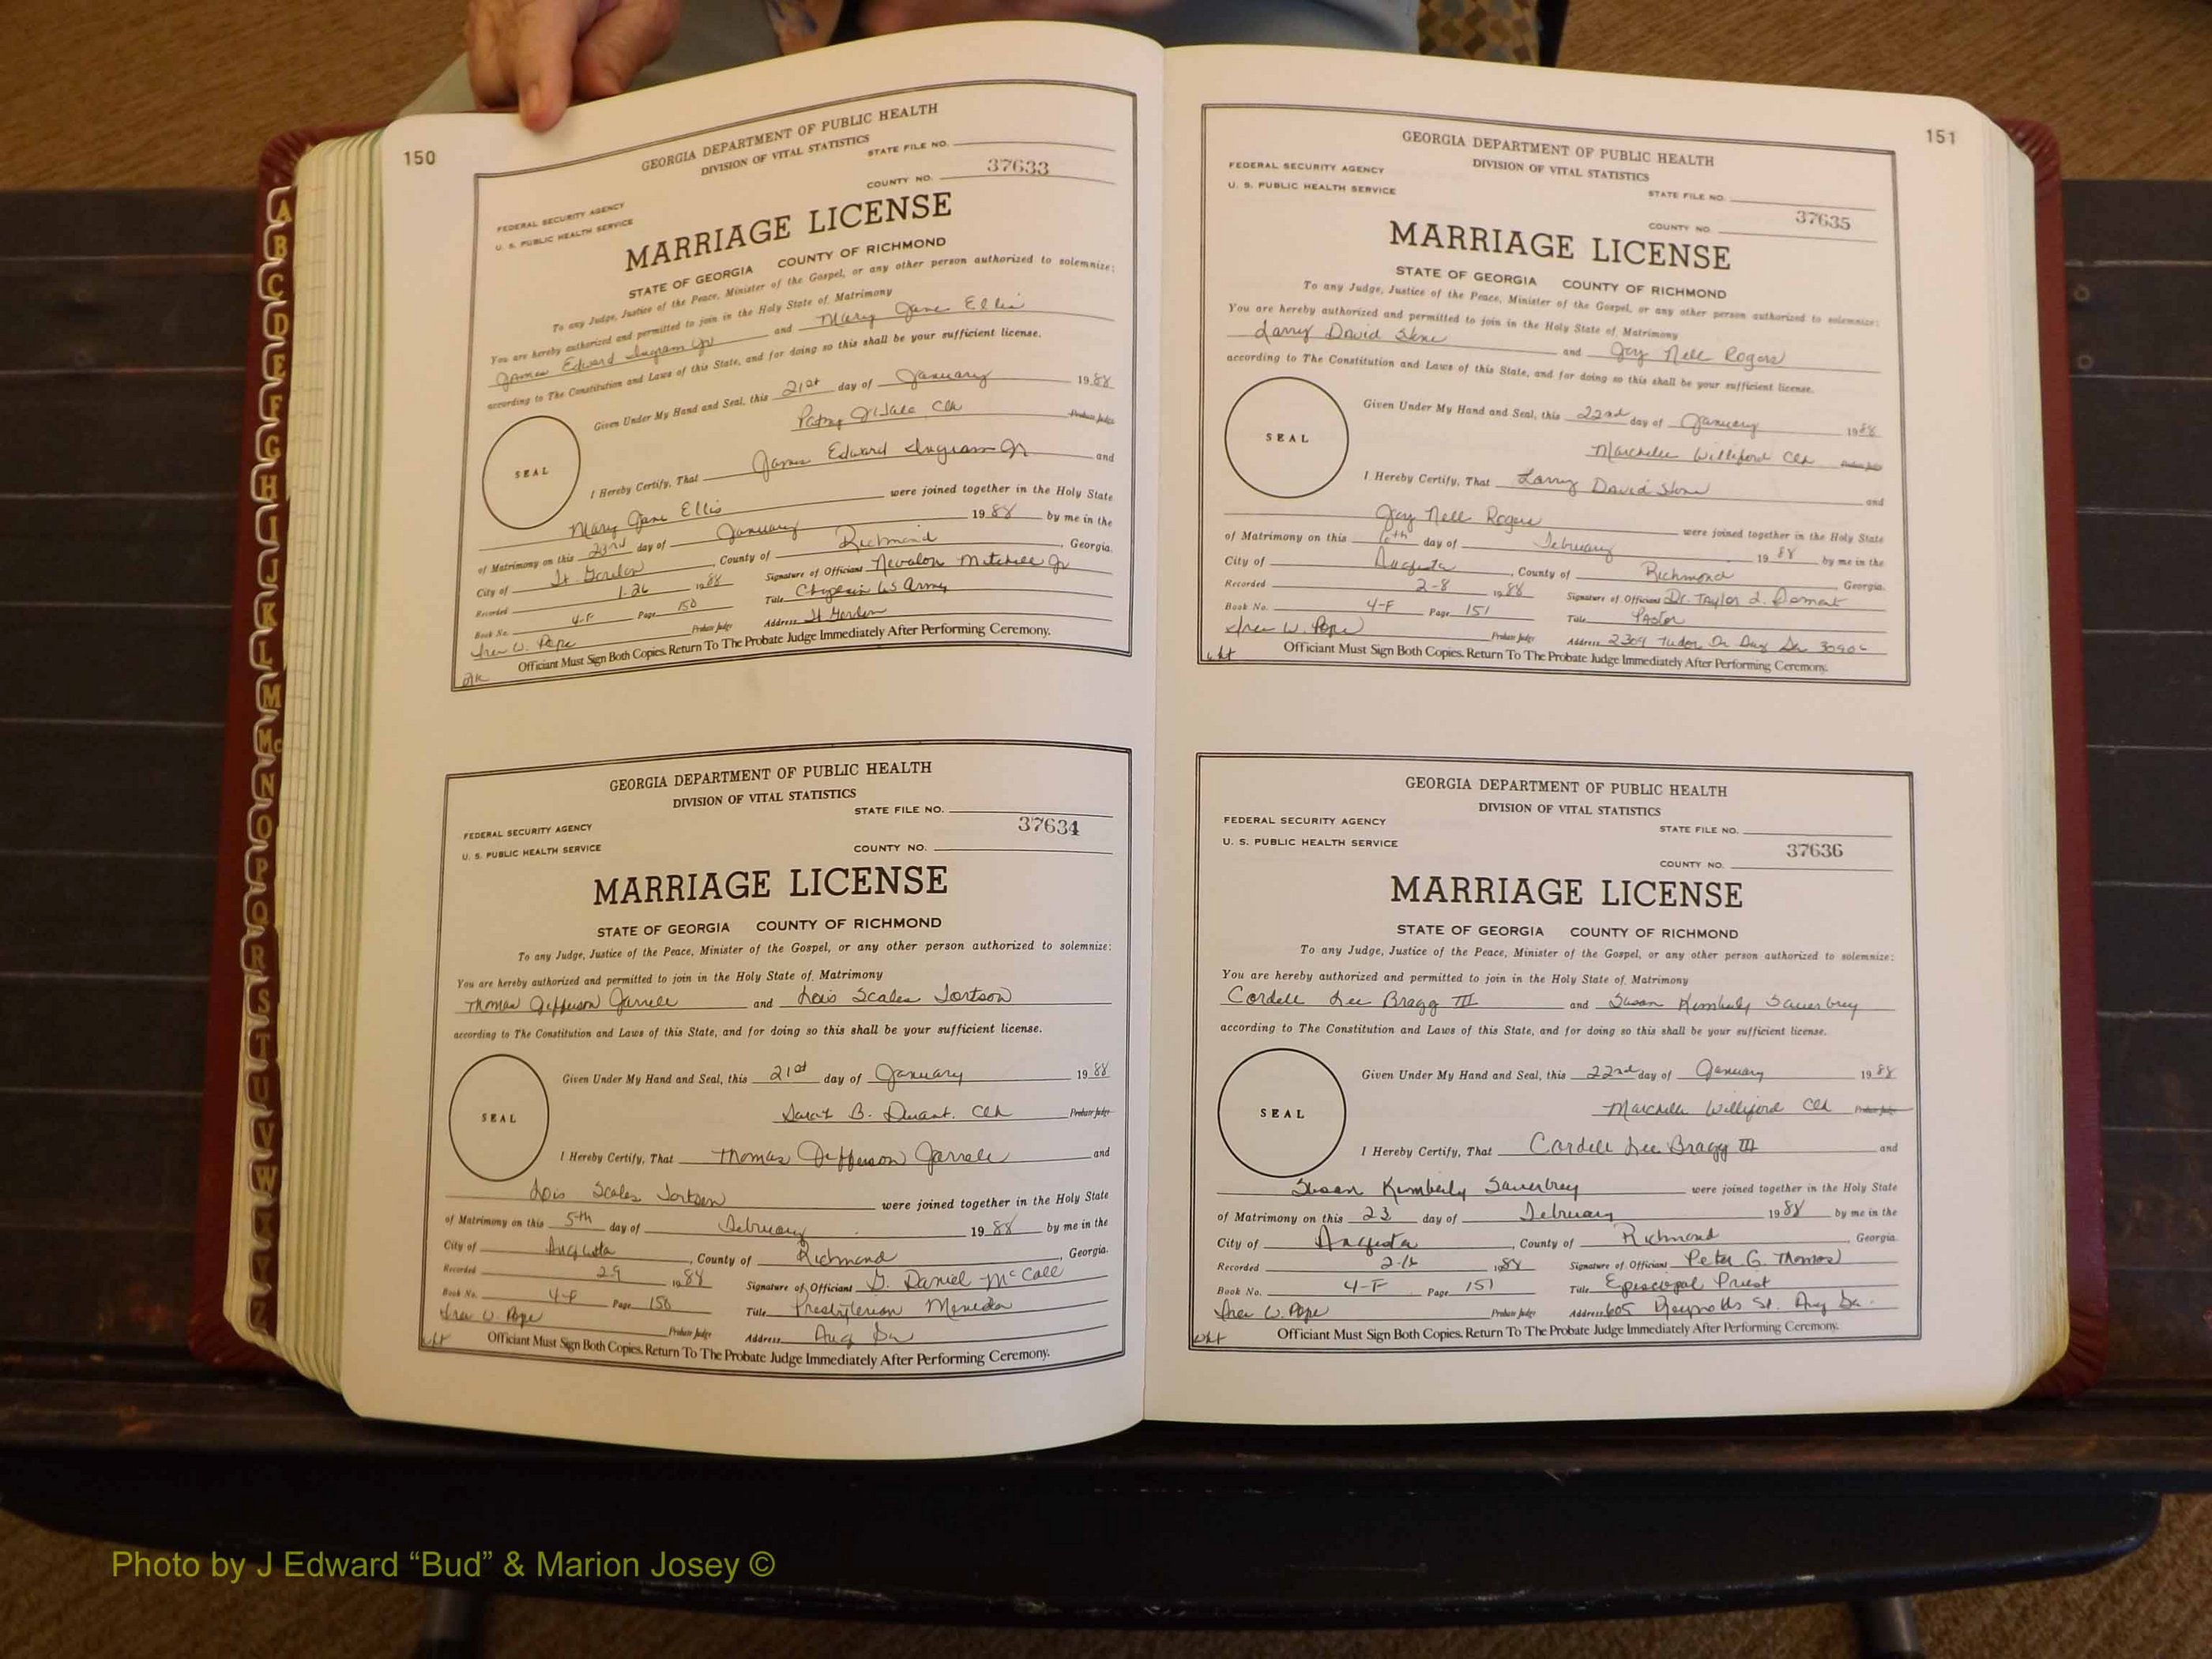 150
GEORGIA DEPARTMENT OF PUBLIC HEALTH
DIVISION OF VITAL STATISTICS
STATE FILE NO.
37633
COUNTY NO.
FEDERAL SECURITY AGENCY
U. S. PUBLIC HEALTH SERVICE
MARRIAGE LICENSE
STATE OF GEORGIA COUNTY OF RICHMOND
To any Judge, Justice of the Peace, Minister of the Gospel, or any other person authorized to solemnize:
You are hereby authorized and permitted to join in the Holy State of Matrimony
James Edward Ingram Jr and Mary Jane Ellis
according to The Constitution and Laws of this State, and for doing so this shall be your sufficient license.
Given Under My Hand and Seal, this 21st day of January 1988
Clk Probate Judge
SEAL
I Hereby Certify, That James Edward Ingram Jr and
Mary Jane Ellis were joined together in the Holy State
of Matrimony on this 23rd day of January 1988 by me in the
City of Ft. Gordon, County of Richmond, Georgia.
Recorded 1-26 1988 Signature of Officiant Nevalon Mitchell Jr
Book No. 4-F Page 150 Title Chaplain US Army
W. Pope Probate Judge Address Ft Gordon
Officiant Must Sign Both Copies. Return To The Probate Judge Immediately After Performing Ceremony.
GEORGIA DEPARTMENT OF PUBLIC HEALTH
DIVISION OF VITAL STATISTICS
STATE FILE NO.
37634
FEDERAL SECURITY AGENCY
U. S. PUBLIC HEALTH SERVICE
COUNTY NO.
MARRIAGE LICENSE
STATE OF GEORGIA COUNTY OF RICHMOND
To any Judge, Justice of the Peace, Minister of the Gospel, or any other person authorized to solemnize:
You are hereby authorized and permitted to join in the Holy State of Matrimony
Thomas Jefferson Jarrell and Lois Scales Fortson
according to The Constitution and Laws of this State, and for doing so this shall be your sufficient license.
Given Under My Hand and Seal, this 21st day of January 1988
B. Clk Probate Judge
SEAL
I Hereby Certify, That Thomas Jefferson Jarrell and
Lois Scales Fortson were joined together in the Holy State
of Matrimony on this 5th day of February 1988 by me in the
City of Augusta, County of Richmond, Georgia.
Recorded 2-9 1988 Signature of Officiant Daniel McCall
Book No. 4-F Page 150 Title Presbyterian Minister
W. Pope Probate Judge Address Aug Ga
wht Officiant Must Sign Both Copies. Return To The Probate Judge Immediately After Performing Ceremony.
151
GEORGIA DEPARTMENT OF PUBLIC HEALTH
DIVISION OF VITAL STATISTICS
FEDERAL SECURITY AGENCY
U. S. PUBLIC HEALTH SERVICE
STATE FILE NO.
37635
COUNTY NO.
MARRIAGE LICENSE
STATE OF GEORGIA COUNTY OF RICHMOND
To any Judge, Justice of the Peace, Minister of the Gospel, or any other person authorized to solemnize:
You are hereby authorized and permitted to join in the Holy State of Matrimony
Larry David Stone and Joy Nell Rogers
according to The Constitution and Laws of this State, and for doing so this shall be your sufficient license.
Given Under My Hand and Seal, this 22nd day of January 1988
Williford Clk Probate Judge
SEAL
I Hereby Certify, That Larry David Stone and
Joy Nell Rogers were joined together in the Holy State
of Matrimony on this 6th day of February 1988 by me in the
City of Augusta, County of Richmond, Georgia.
Recorded 2-8 1988 Signature of Officiant Dr. Taylor
Book No. 4-F Page 151 Title Pastor
W. Pope Probate Judge Address 2309 Tudor Dr Aug Ga 30906
wht Officiant Must Sign Both Copies. Return To The Probate Judge Immediately After Performing Ceremony.
GEORGIA DEPARTMENT OF PUBLIC HEALTH
DIVISION OF VITAL STATISTICS
FEDERAL SECURITY AGENCY
U. S. PUBLIC HEALTH SERVICE
STATE FILE NO.
37636
COUNTY NO.
MARRIAGE LICENSE
STATE OF GEORGIA COUNTY OF RICHMOND
To any Judge, Justice of the Peace, Minister of the Gospel, or any other person authorized to solemnize:
You are hereby authorized and permitted to join in the Holy State of Matrimony
Cordell Lee Bragg III and Susan Kimberly Sauerbrey
according to The Constitution and Laws of this State, and for doing so this shall be your sufficient license.
Given Under My Hand and Seal, this 22nd day of January 1988
Williford Clk Probate Judge
SEAL
I Hereby Certify, That Cordell Lee Bragg III and
Susan Kimberly Sauerbrey were joined together in the Holy State
of Matrimony on this 23 day of February 1988 by me in the
City of Augusta, County of Richmond, Georgia.
Recorded 1988 Signature of Officiant Peter G. Thomas
Book No. 4-F Page 151 Title Episcopal Priest
W. Pope Probate Judge Address 605 Reynolds St. Aug Ga.
wht Officiant Must Sign Both Copies. Return To The Probate Judge Immediately After Performing Ceremony.
A
B
C
D
E
F
G
H
I
J
K
L
M
Mc
N
O
P
Q
R
S
T
U
V
W
X
Y
Z
Photo by J Edward “Bud” & Marion Josey ©